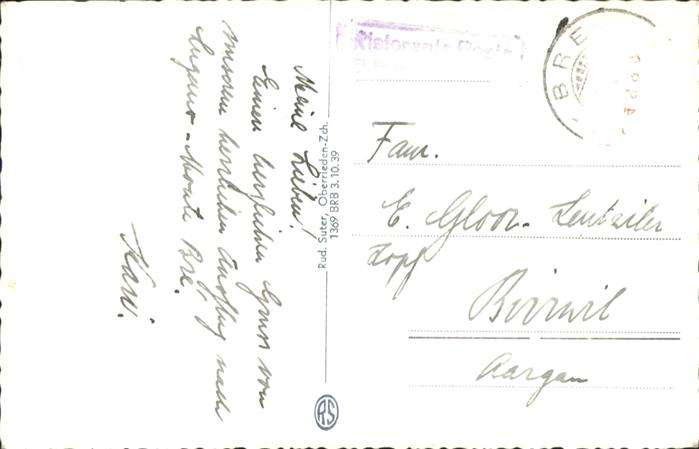 Meine Lieben!
Einen herzlichen Gruss von
unserem herrlichen Ausflug nach
Lugano-Monte Brè.
Rud. Suter, Oberrieden-Zch.
1369 BRB 3.10.39
RS
BRE
Fam.
E. Gloor-Leutwiler
Zopf
Birrwil
Aargau